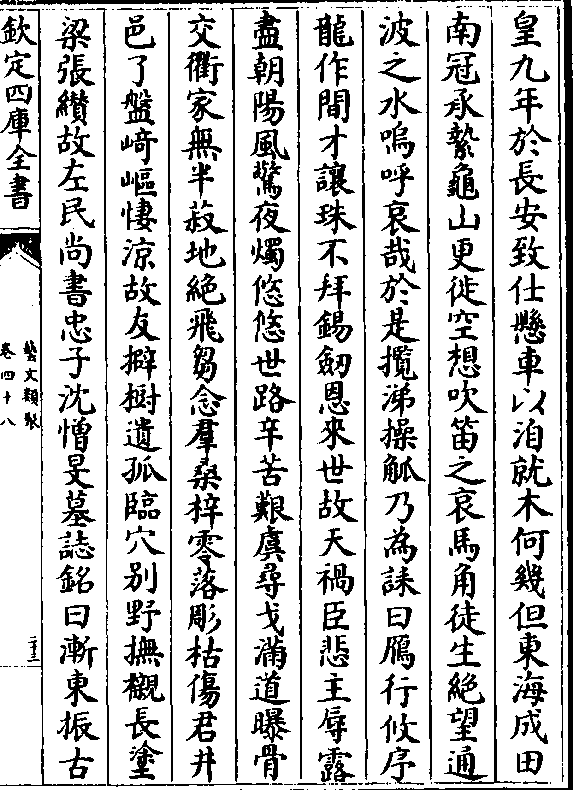 皇九年於長安致仕懸車以洎就木何幾但東海成田
南冠承縶龜山更徙空想吹笛之哀馬角徒生絕望通
波之水嗚呼哀哉於是攬涕操觚乃為誄曰鴈行攸序
龍作間才讓珠不拜錫劒恩來世故天禍臣悲主辱露
盡朝陽風驚夜燭悠悠世路辛苦艱虞尋戈滿道曝骨
交衢家無半菽地絕飛芻念羣桑梓零落彫枯傷君井
邑了盤﨑嶇悽涼故友擗𣗳遺孤臨穴别野撫櫬長塗
梁張纘故左民尚書忠子沈憎旻墓誌銘曰漸東振古
欽定四庫全書
藝文類聚
卷四十八
二十三